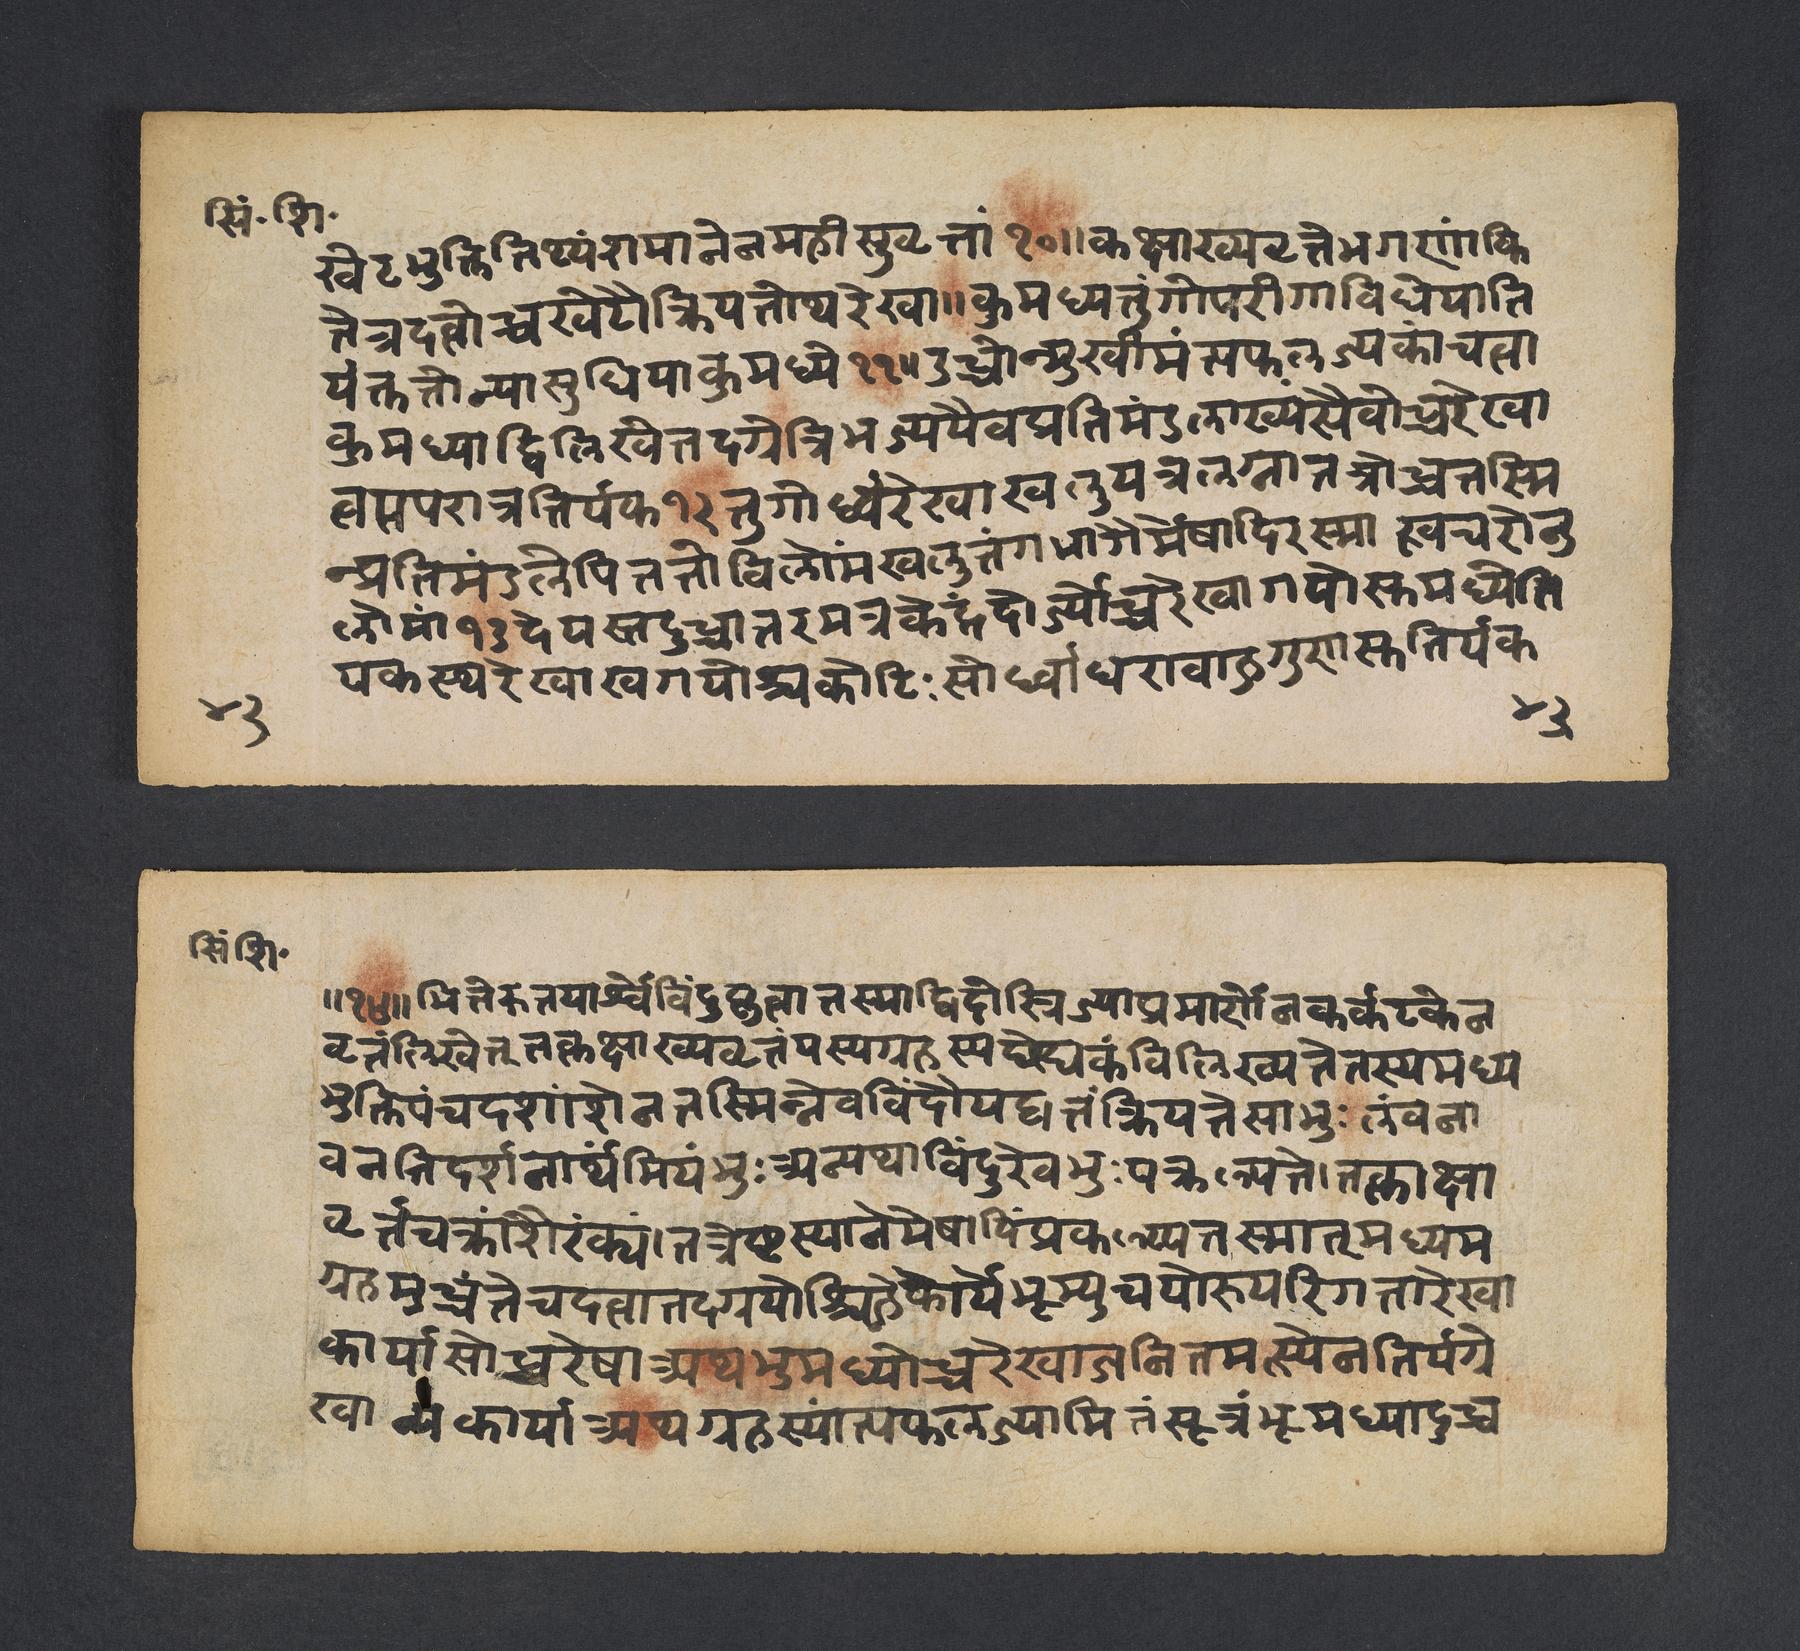 सिं. शि.
खेट भुक्तितिथ्यंशमानेन महीसुवृत्तां १०॥ कक्षाख्यवृत्ते भगणांकि
तेत्र दत्वोच्चखेटौ क्रियतोथ रेखा॥ कुमध्यतुंगोपरीगा विधेयाति
र्यक्ततोन्या सुधिया कुमध्ये ११॥ उच्चोन्मुखीमंत्यफलज्यकां च दत्वा
कुमध्याद्विलिखेत्तदग्रे त्रिभज्ययैव प्रतिमंडलाख्यं सैवोच्चरेखा
त्वपरात्र तिर्यक् १२ तुगोर्ध्वरेखा खलु यत्र लग्ना तत्रोच्चतस्मि
न्प्रतिमंडलेपि ततो विलोमं खलु तुंगभागैर्मेषादिरस्मा त्खचरोनु
लोमां १३ देयस्तदुच्चांतरमत्र केंद्रं दोर्ज्योच्चरेखागपोस्तमध्येति
यकस्थरेखाखगयोश्चकोटिः सोर्ध्वाधरा वाहुगुणास्त तिर्यक
४३
४३
सिं शि.
॥१४॥ भित्तेरुत्तपार्श्वे विंदुं कृत्वा तस्माद्विंदोस्त्रिज्याप्रमाणेन कर्कटकेन
वृत्तं लिखेत् तत्कक्षाख्यवृत्तं यस्य ग्रहस्य छेद्यकं विलिख्यते तस्य मध्य
भुक्तिपंचदशांशेन तस्मिन्नेव विंदौ यद्वृत्तं क्रियते सा भुः लंवना
वनतिदर्शनार्थमियं भुः अन्यथा विंदुरेव भुः पक्रल्प्यते। तत्काक्षा
वृत्तं चक्रांशैरंक्यं। तत्रेष्टस्थाने मेषादिं प्रकल्प्य तस्मात् मध्यम
ग्रहमुच्चं ते च दत्वा तदग्रयोश्चिह्ने कार्ये भूम्युच्चयोरुपरिगता रेखा
कार्या सोच्चरेषा अथ भुमध्योच्चरेखाजनितमत्स्येन तिर्यग्रे
खा न्या कार्या अथ ग्रहस्यांत्यफलज्यामितं सूत्रं भूमध्यादुच्च